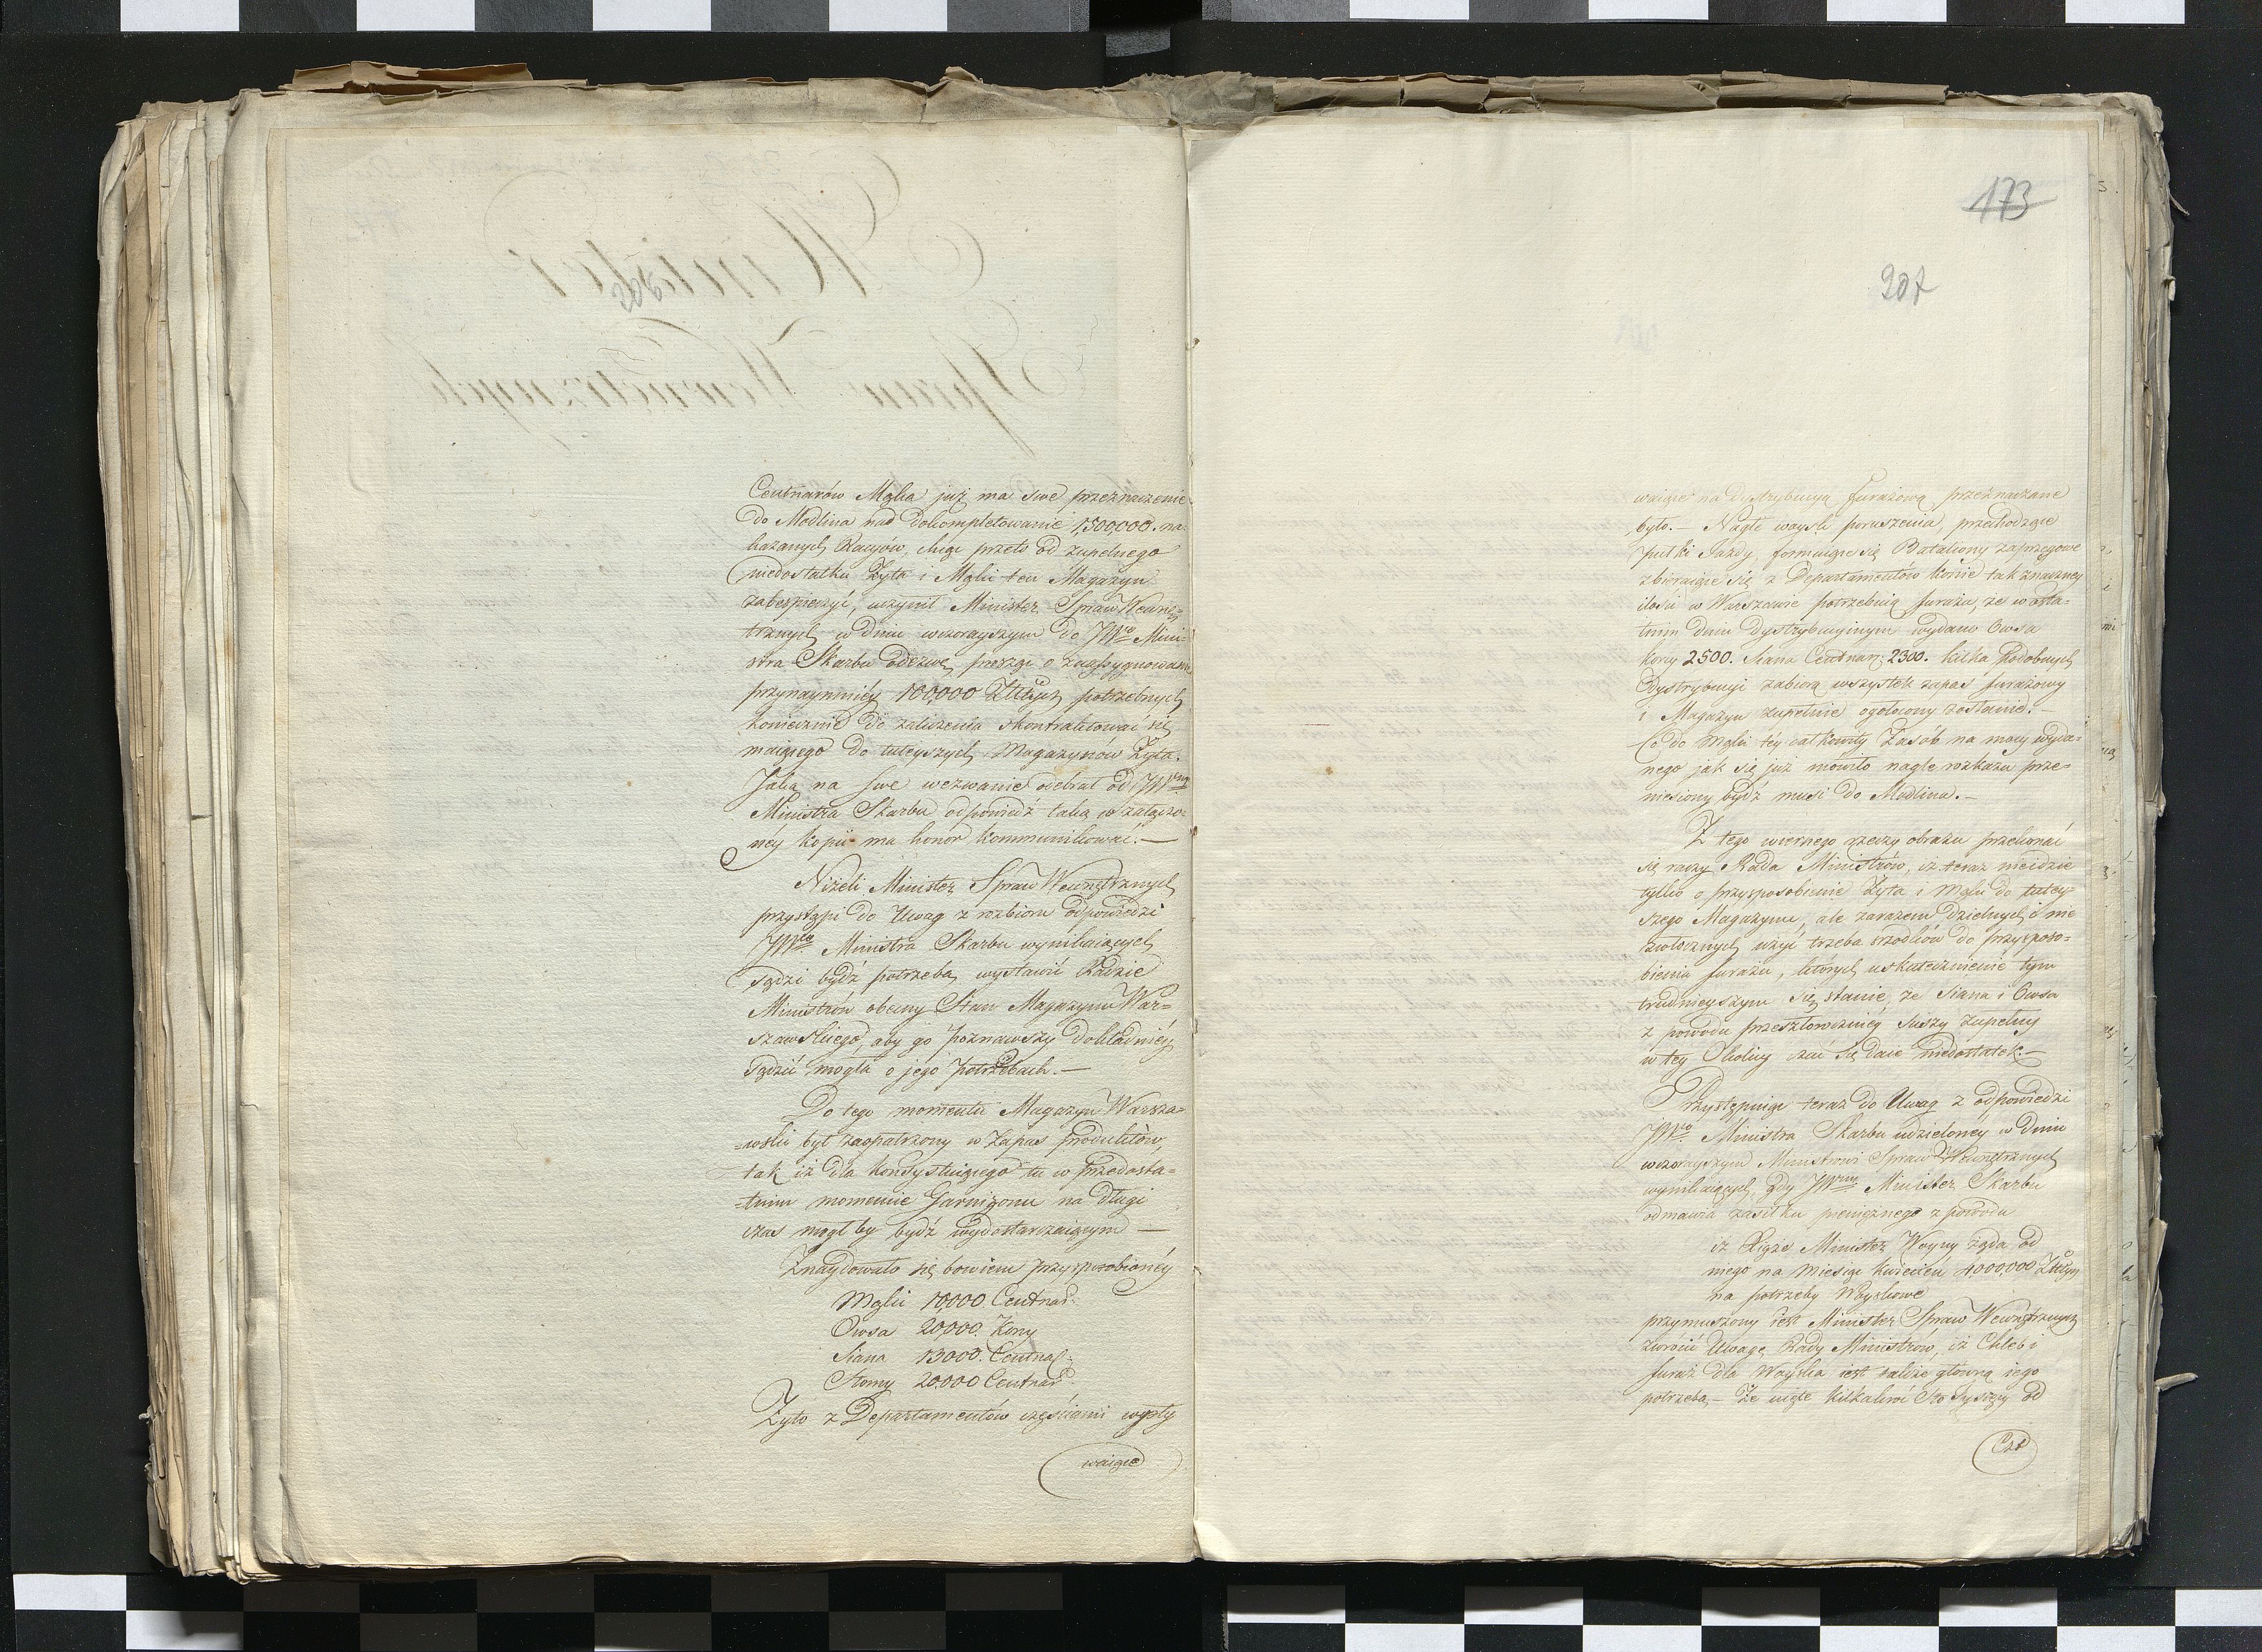 Centnarów Mąka już ma swe przeznaczenie
do Modlina nad dokompletowanie 1,500,000. na
kazanych Racyów, chcąc przeto od zupełnego
niedostatku Żyta i Mąki ten Magazyn
zabespieczyć, uczynił Minister Spraw Wewnę=
trznych w dniu wczorayszym do JWgo Mini=
stra Skarbu odezwę, prosząc o zaassygnowanie
przynaymniéy 100,000 Złłtych potrzebnych
koniecznie do zaliczenia skontraktować się
maiącego do tuteyszych Magazynów Żyta.
Jaką na swe wezwanie odebrał od JWgo
Ministra Skarbu odpowiedź taką w załączo=
néy kopii ma honor kommunikować.—
Niżeli Minister Spraw Wewnętrznych
przystąpi do Uwag z rozbioru odpowiedzi
JWgo Ministra Skarbu wynikaiących
sądzi bydź potrzebą wystawić Radzie
Ministrów obecny Stan Magazynu War=
szawskiego, aby go poznawszy dokładniéy
sądzić mogła o jego potrzebach.—
Do tego momentu Magazyn Warsza=
=wski był zaopatrzony w Zapas produktów,
tak iż dla konsystuiącego tu w przedosta=
=tnim momencie Garnizonu na długi
czas mogł by bydź wydostarczaiącym —
Znaydowało się bowiem przysposobionéy
Mąki 10,000. Centnar:
Owsa 20,000. Korcy
Siana 13000. Centnar:
Słomy 20.000 Centnar:
Żyto z Departamentów częściami wpły
waiące
173
207
waiące na dystrybucyą furażową przeznaczane
było.— Nagłe woysk poruszenia, przechodzące
pułki Jazdy, formuiące się Bataliony zaprzęgowe
zbieraiące się z Departamentów konie tak znaczney
ilości w Warszawie potrzebuią furażu, że w osta=
tnim dniu Dystrybucyinym wydano Owsa
korcy 2500. Siana Centnar: 2300. kilka podobnych
Dystrybucyi zabiorą wszystek zapas furażowy
i Magazyn zupełnie ogołocony zostanie.—
Co do Mąki téy całkowity Zasób na mocy wyda=
nego jak się już mówiło nagle rozkazu prze=
niesiony bydź musi do Modlina.—
Z tego wiernego rzeczy obrazu przekonać
się raczy Rada Ministrów, iż teraz nieidzie
tylko o przysposobienie Żyta i Mąki do tutey=
szego Magazynu, ale zarazem dzielnych i nie
zwłocznych użyć trzeba srzodków do przysposo=
bienia furażu, których uskutecznienie tym
trudnieyszym się stanie, że Siana i Owsa
z powodu przeszłoroczney suszy zupełny
w tey Okolicy czuć się daie niedostatek.—
Przystępuiąc teraz do Uwag z odpowiedzi
JWgo Ministra Skarbu udzielonéy w dniu
wczorayszym Ministrowi Spraw Wewnętrznych
wynikaiących, gdy JWny Minister Skarbu
odmawia zasiłku pieniężnego z powodu
iż Xiąże Minister Woyny żąda od
niego na Miesiąc Kwiecień 4,000,000 Złłtych
na potrzeby Woyskowe
przymuszony iest Minister Spraw Wewnętrznych
zwrócić Uwagę Rady Ministrów, iż Chleb i
furaż dla Woyska iest także główną iego
potrzebą.— Że więc kilkakroć Sto Tysięcy od